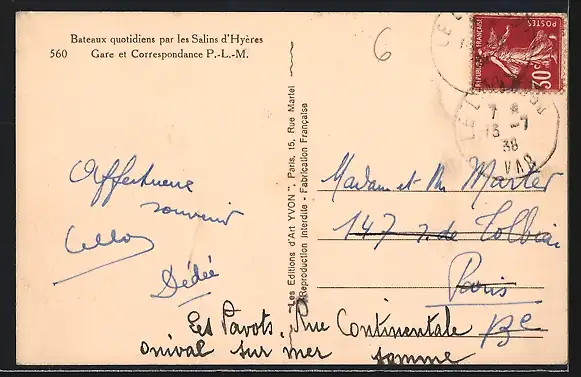 Bateaux quotidiens par les Salins d'Hyères
560 Gare et Correspondance P.-L.-M.
6
POSTES
RÉPUBLIQUE FRANÇAISE
30c
LE L
7 8
13 -7
38
VAR
"Les Editions d'Art YVON", Paris, 15, Rue Martel
Reproduction Interdite - Fabrication Française
Affectueux
souvenir
Dédée
Madame et Mr Marter
147 r. de Tolbiac
Paris
13e
Les Pavots, Rue Continentale
onival sur mer somme